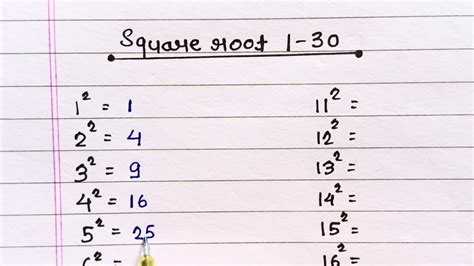 Square root 1-30
1² = 1
2² = 4
3² = 9
4² = 16
5² = 25
6² =
11² =
12² =
13² =
14² =
15² =
16² =